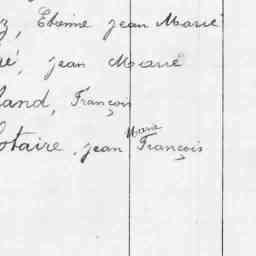 z, Etienne Jean Marie
é, Jean Marie
land, François
otaire, Jean Marie François